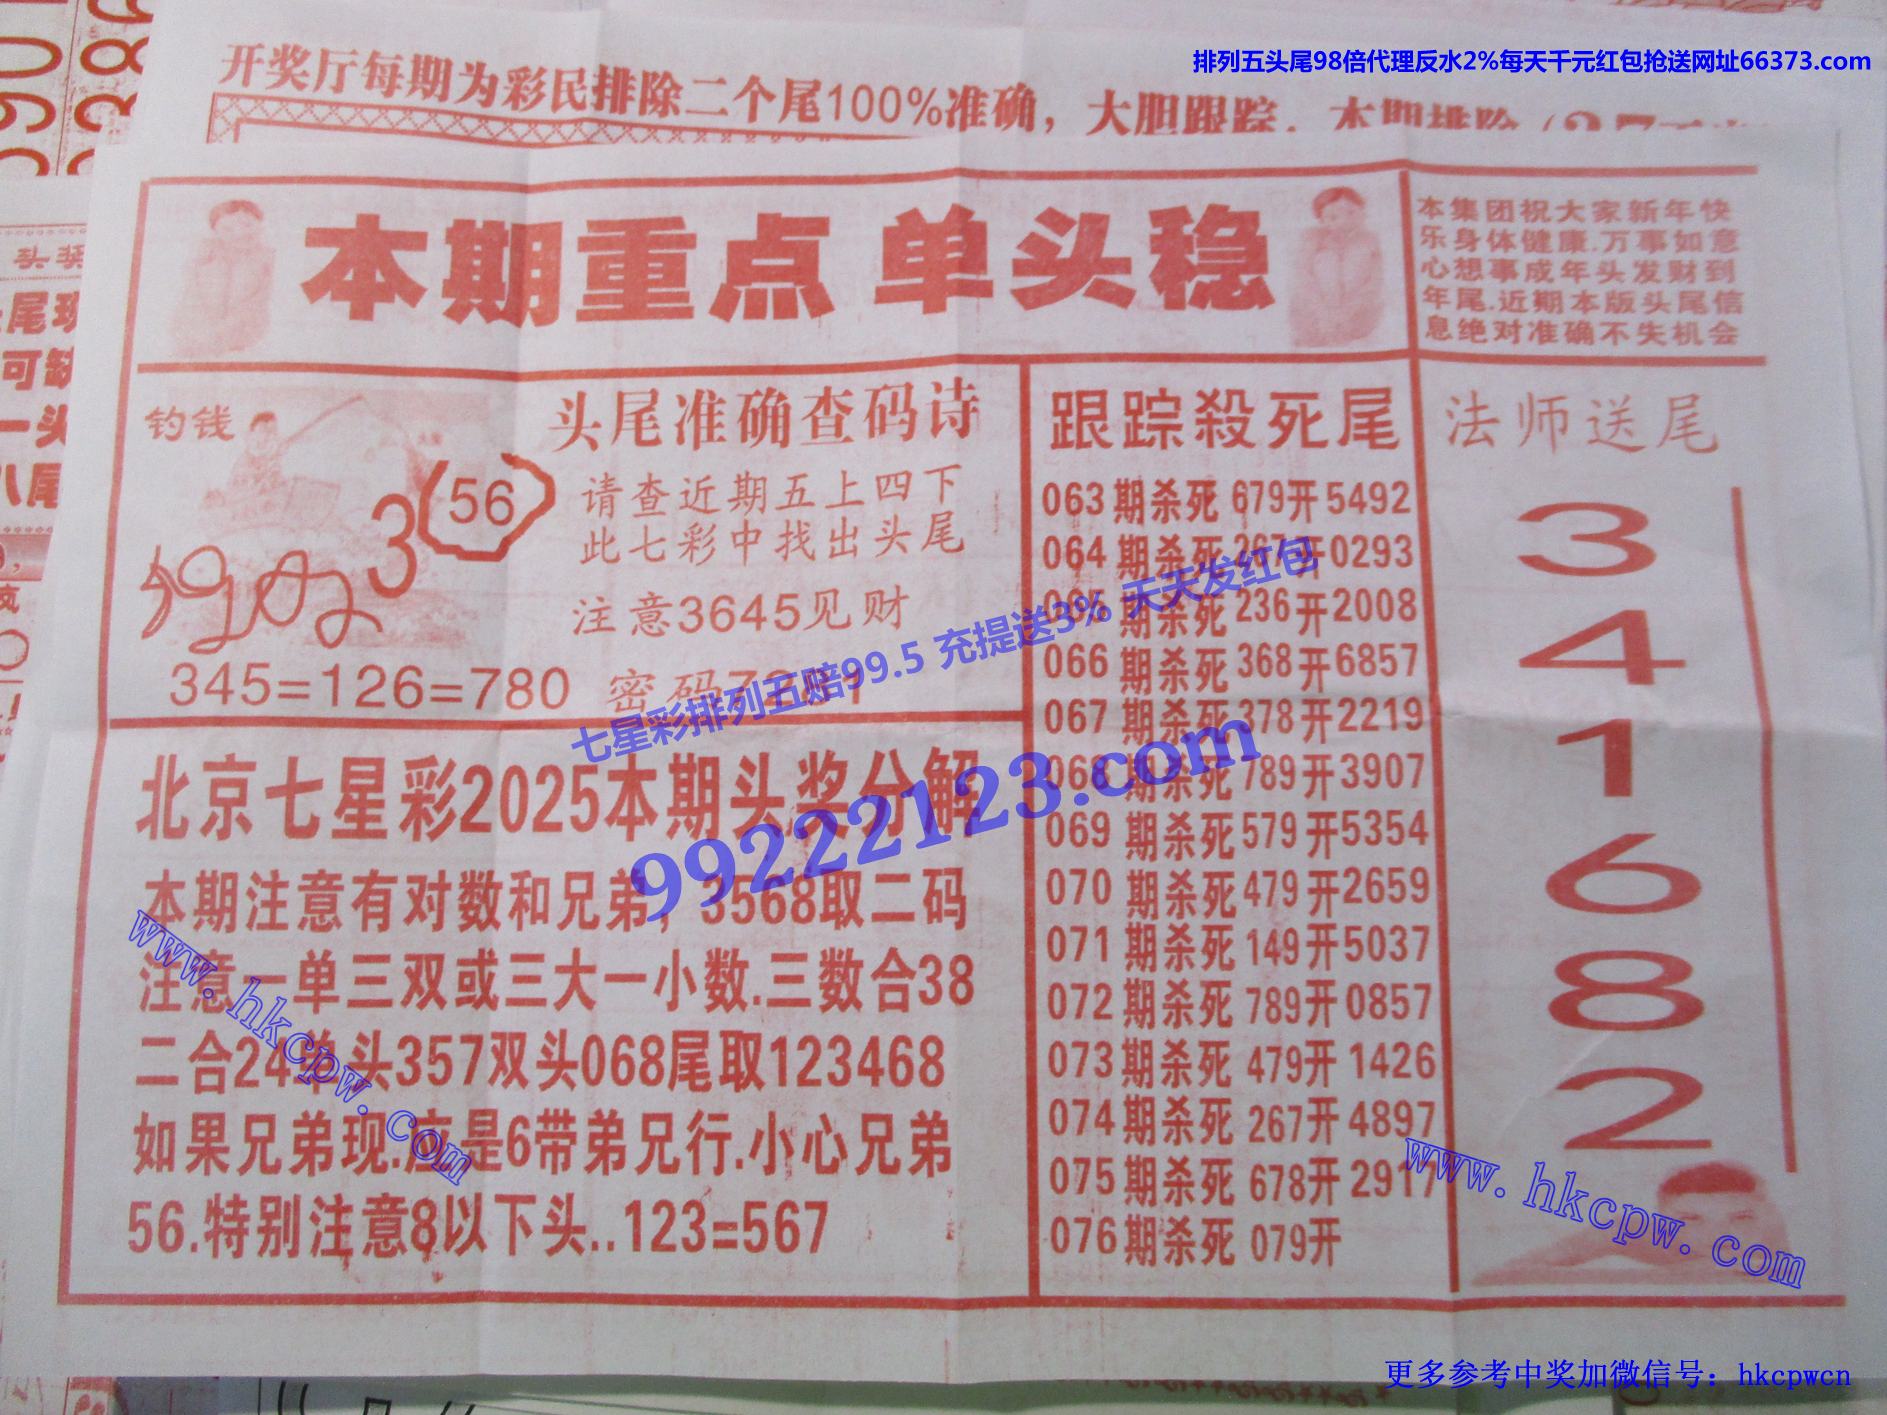 排列五头尾98倍代理反水2%每天千元红包抢送网址66373.com
开奖厅每期为彩民排除二个尾100%准确，大胆跟踪．本期排除
本期重点 单头稳
本集团祝大家新年快
乐身体健康.万事如意
心想事成年头发财到
年尾.近期本版头尾信
息绝对准确不失机会
钓钱
3
(56)
头尾准确查码诗
请查近期五上四下
此七彩中找出头尾
注意3645见财
345=126=780 密码
七星彩排列五赔99.5 充提送3% 天天发红包
99222123.com
北京七星彩2025本期头奖分解
本期注意有对数和兄弟，3568取二码
注意一单三双或三大一小数.三数合38
二合24单头357双头068尾取123468
如果兄弟现.应是6带弟兄行.小心兄弟
56.特别注意8以下头..123=567
跟踪殺死尾
063期杀死679开5492
064期杀死267开0293
065期杀死236开2008
066期杀死368开6857
067期杀死378开2219
068期杀死789开3907
069期杀死579开5354
070期杀死479开2659
071期杀死149开5037
072期杀死789开0857
073期杀死479开1426
074期杀死267开4897
075期杀死678开2917
076期杀死079开
法师送尾
3
4
1
6
8
2
www.hkcpw.com
www.hkcpw.com
更多参考中奖加微信号：hkcpwcn